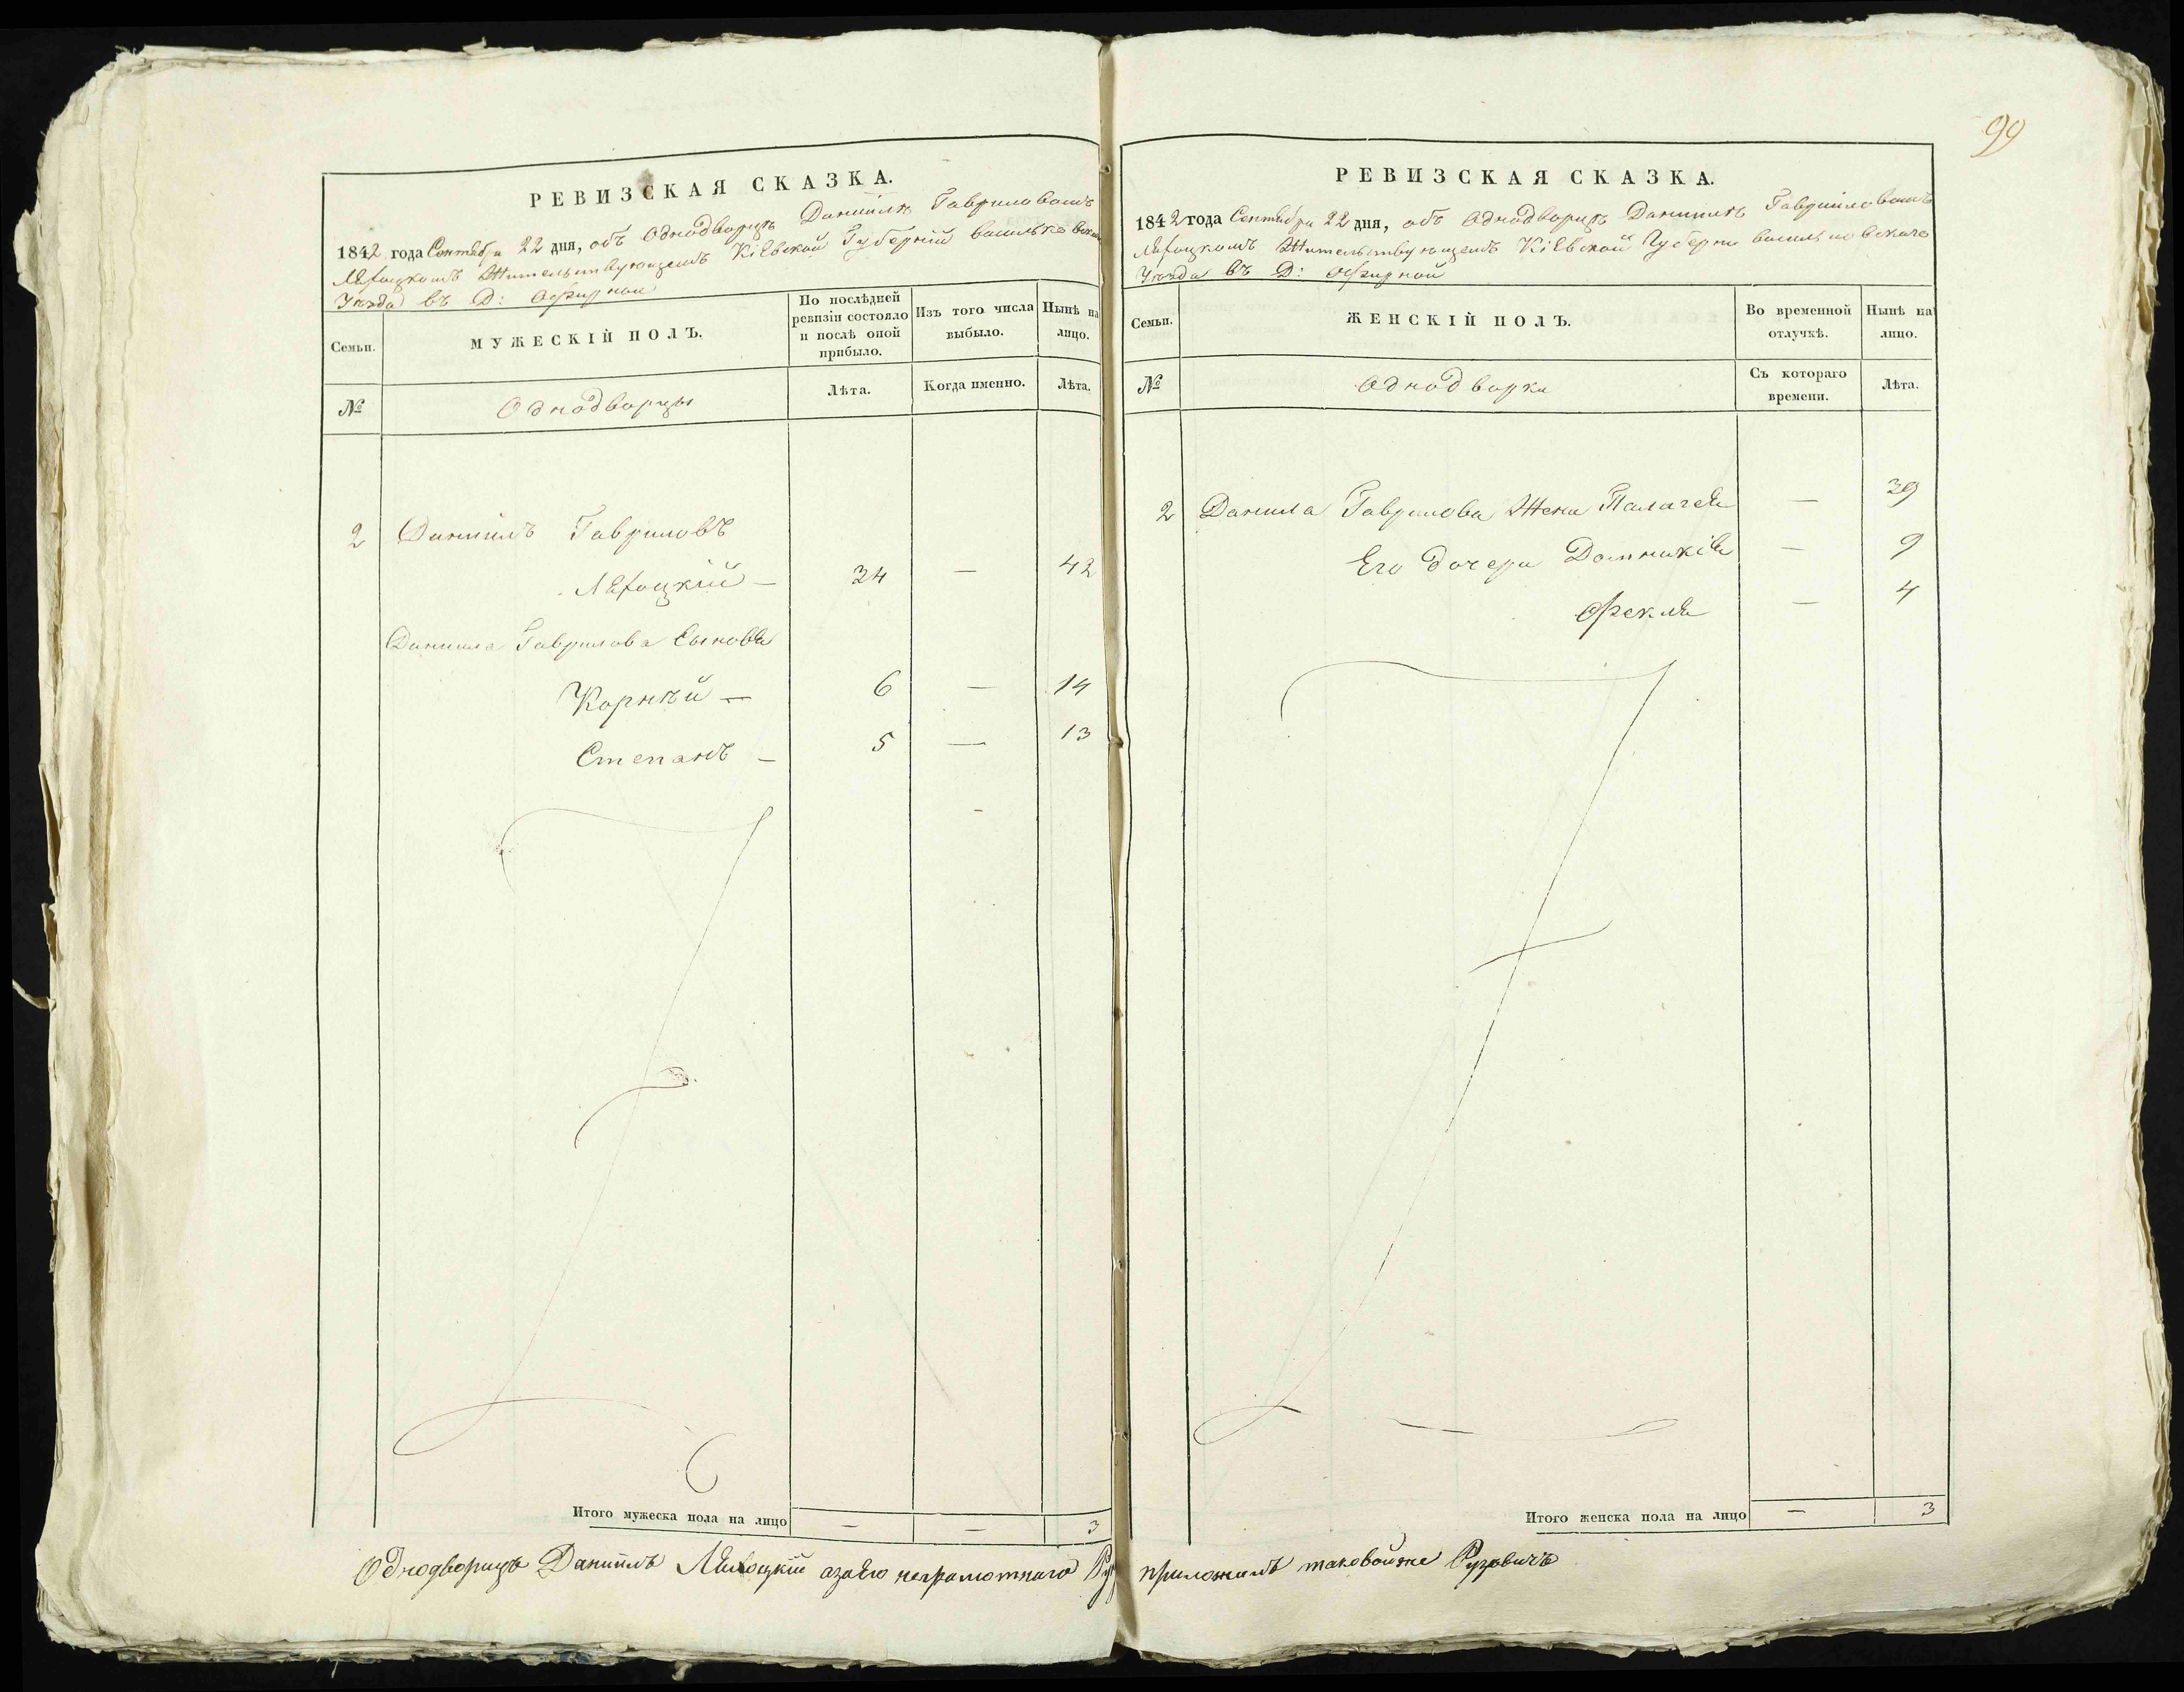 99
РЕВИЗСКАЯ СКАЗКА.
1842 года Сентября 22 дня, объ Однодворцѣ Даніилѣ Гавриловомъ
Жительствующемъ Кіевской Губерніи Васильковскаго
Уѣзда въ Д:
Семьи.
МУЖЕСКІЙ ПОЛЪ.
По послѣдней ревизіи состояло и послѣ оной прибыло.
Изъ того числа выбыло.
Нынѣ на лицо.
№
Однодворцы
Лѣта.
Когда именно.
Лѣта.
2 Даніилъ Гавриловъ
34 — 42
Даниила Гаврилова Сыновья
Корнѣй — 6 — 14
Степанъ — 5 — 13
Итого мужеска пола на лицо — — 3
Однодворецъ Даніилъ азаего неграмотнаго
РЕВИЗСКАЯ СКАЗКА.
1842 года Сентября 22 дня, объ Однодворцѣ Даниилѣ Гавриіловомъ
Жительствующемъ Кіевской Губерни Васильковскаго
Уѣзда въ Д:
Семьи.
ЖЕНСКІЙ ПОЛЪ.
Во временной отлучкѣ.
Нынѣ на лицо.
№
Однодворки
Съ котораго времени.
Лѣта.
2 Данила Гаврилова Жена Палагея — 39
Его дочери Домникія — 9
Фекля — 4
Итого женска пола на лицо — 3
приложилъ таковойже